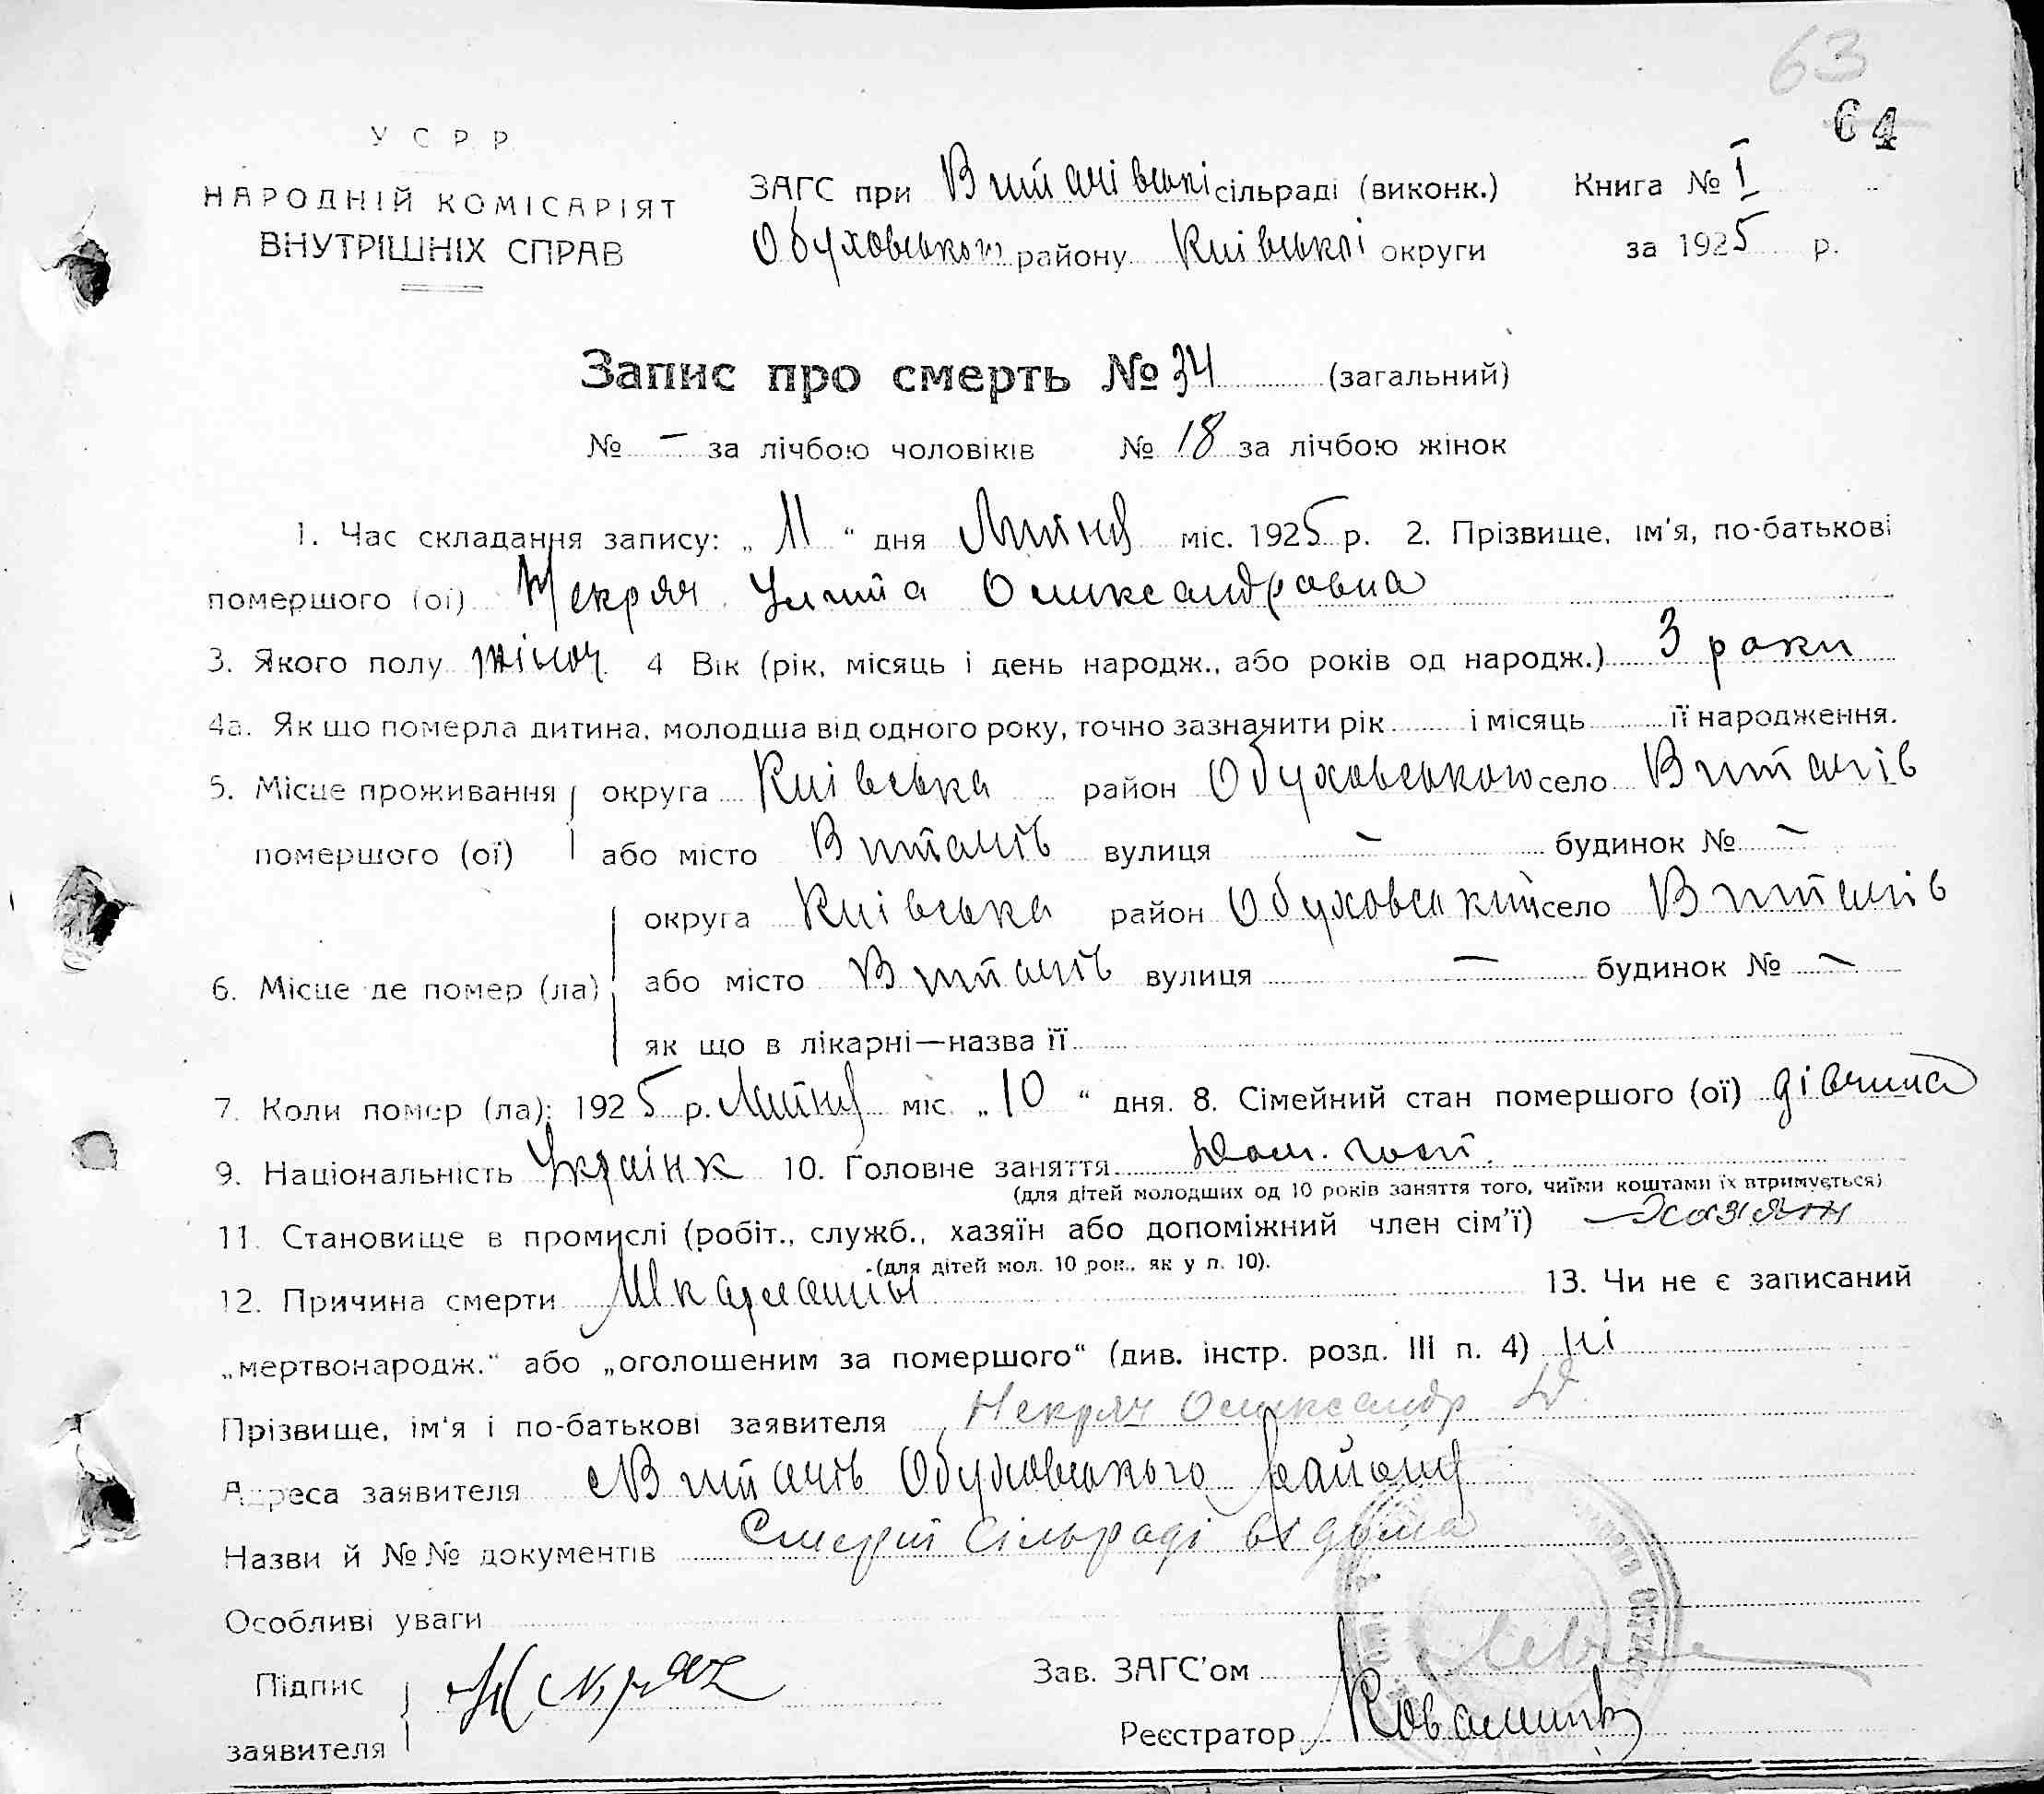 63
64
У С Р Р.
НАРОДНІЙ КОМІСАРІЯТ
ВНУТРІШНІХ СПРАВ
ЗАГС при Витачівські сільраді (виконк.) Книга № I
Обуховського району Київської округи за 1925 р.
Запис про смерть № 34 (загальний)
№ – за лічбою чоловіків № 18 за лічбою жінок
1. Час складання запису: „ 11 “ дня Липня міс. 1925 р. 2. Прізвище, ім'я, по-батькові
помершого (ої) Некряч Улита Олександровна
3. Якого полу жіноч 4 Вік (рік, місяць і день народж., або років од народж.) 3 роки
4а. Як що померла дитина, молодша від одного року, точно зазначити рік і місяць її народження.
5. Місце проживання округа Київська район Обуховського село Витачів
помершого (ої) або місто Витачів вулиця – будинок № –
округа Київська район Обуховський село Витачів
6. Місце де помер (ла) або місто Витачів вулиця – будинок № –
як що в лікарні—назва її
7. Коли помер (ла): 1925 р. Липня міс. „ 10 “ дня. 8. Сімейний стан помершого (ої) дівчина
9. Національність Українк 10. Головне заняття
(для дітей молодших од 10 років заняття того, чиїми коштами їх втримується)
11. Становище в промислі (робіт., служб., хазяїн або допоміжний член сім'ї) Хазяїн
(для дітей мол. 10 рок., як у п. 10).
12. Причина смерти 13. Чи не є записаний
„мертвонародж.“ або „оголошеним за помершого“ (див. інстр. розд. III п. 4) ні
Прізвище, ім'я і по-батькові заявителя Некряч Олександр
Адреса заявителя Витачів Обуховського Району
Назви й №№ документів Смерть Сільраді відома
Особливі уваги
Підпис заявителя Некряч
Зав. ЗАГС'ом
Реєстратор